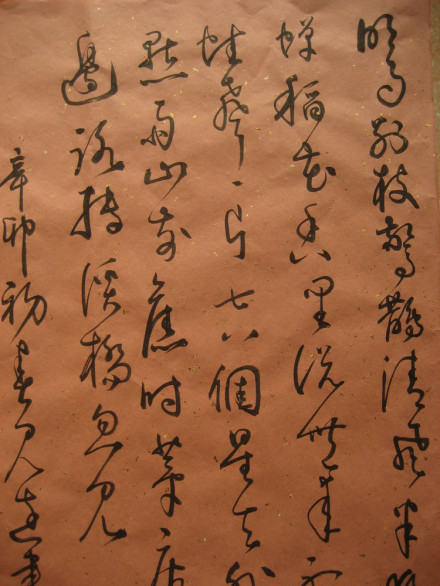 明月別枝驚鵲清風半
蟬稻花香里說豐年
蛙聲一片七八個星天外
點雨山前舊時茅店
邊路轉溪橋忽見
辛卯初春